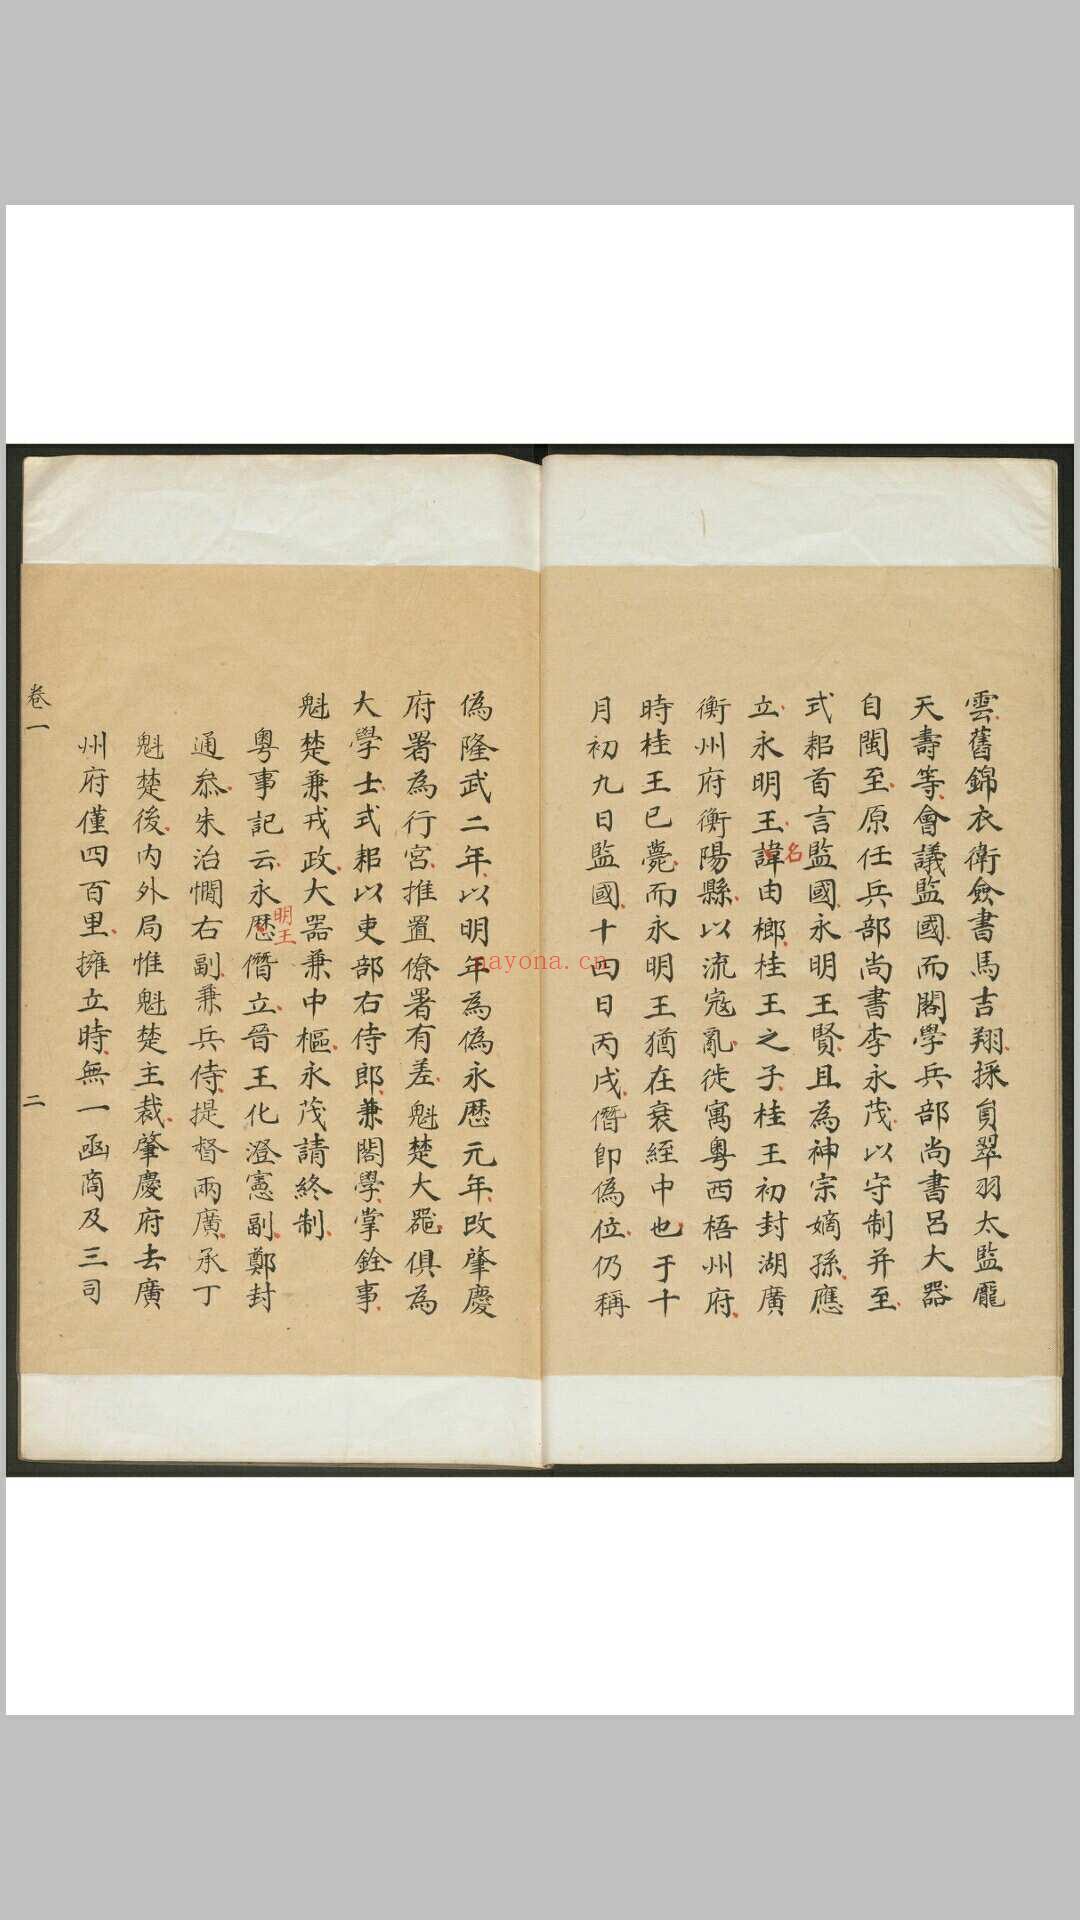 雲舊錦衣衛僉書馬吉翔採貟翠羽太監龐
天壽等會議監國而閣學兵部尚書呂大器
自閩至原任兵部尚書李永茂以守制并至
式耜首言監國永明王賢且為神宗嫡孫應
立永明王諱由榔桂王之子桂王初封湖廣
名
衡州府衡陽縣以流寇亂徙寓粵西梧州府
時桂王已薨而永明王猶在衰絰中也于十
月初九日監國十四日丙戌僭即偽位仍稱
偽隆武二年以明年為偽永歷元年改肇慶
府署為行宮推置僚署有差魁楚大器俱為
大學士式耜以吏部右侍郎兼閣學掌銓事
魁楚兼戎政大器兼中樞永茂請終制
粵事記云永歷僭立晉王化澄憲副鄭封
明王
通叅朱治憪右副兼兵侍提督兩廣承丁
魁楚後內外局惟魁楚主裁肇慶府去廣
州府僅四百里擁立時無一函商及三司
卷一
二
nayona.cn